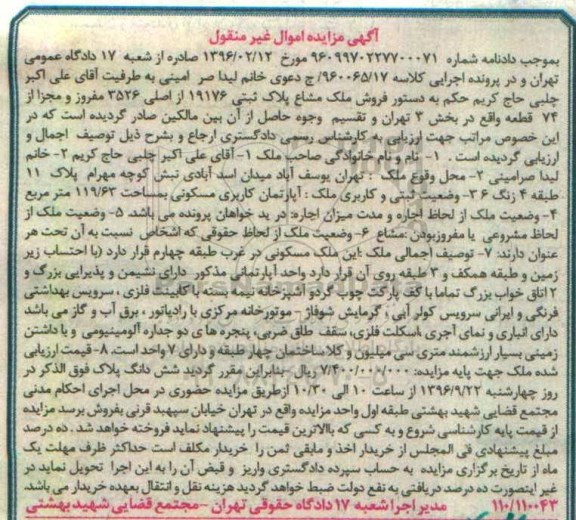 آگهی مزایده اموال غیر منقول
بموجب دادنامه شماره ۹۶۰۹۹۷۰۲۲۷۷۰۰۰۷۱ مورخ ۱۳۹۶/۰۲/۱۲ صادره از شعبه ۱۷ دادگاه عمومی
تهران و در پرونده اجرایی کلاسه ۹۶۰۰۶۵/۱۷/ ج دعوی خانم لیدا صر امینی به طرفیت آقای علی اکبر
چلبی حاج کریم حکم به دستور فروش ملک مشاع پلاک ثبتی ۱۹۱۷۶ از اصلی ۳۵۲۶ مفروز و مجزا از
۷۴ قطعه واقع در بخش ۳ تهران و تقسیم وجوه حاصل از آن بین مالکین صادر گردیده است که در
این خصوص مراتب جهت ارزیابی به کارشناس رسمی دادگستری ارجاع و بشرح ذیل توصیف اجمال و
ارزیابی گردیده است . ۱- نام و نام خانوادگی صاحب ملک ۱- آقای علی اکبر چلبی حاج کریم ۲- خانم
لیدا صرامینی ۲- محل وقوع ملک : تهران یوسف آباد میدان اسد آبادی نبش کوچه مهرام پلاک ۱۱
طبقه ۴ زنگ ۶ ۳- وضعیت ثبتی و کاربری ملک : آپارتمان کاربری مسکونی بمساحت ۱۱۹/۶۳ متر مربع
۴- وضعیت ملک از لحاظ اجاره و مدت میزان اجاره: در ید خواهان پرونده می باشد. ۵- وضعیت ملک از
لحاظ مشروعی یا مفروزبودن :مشاع ۶- وضعیت ملک از لحاظ حقوقی که اشخاص نسبت به آن تحت هر
عنوان دارند: ۷- توصیف اجمالی ملک :این ملک مسکونی در غرب طبقه چهارم قرار دارد (با احتساب زیر
زمین و طبقه همکف و ۳ طبقه روی آن قرار دارد واحد آپارتمانی مذکور دارای نشیمن و پذیرایی بزرگ و
۲ اتاق خواب بزرگ تماما با کف پارکت چوب گردو آشپزخانه نیمه بسته با کابینت فلزی ، سرویس بهداشتی
فرنگی و ایرانی سرویس کولر آبی ، گرمایش شوفاژ - موتورخانه مرکزی با رادیاتور ، برق آب و گاز می باشد
دارای انباری و نمای آجری ،اسکلت فلزی، سقف طاق ضربی، پنجره های دو جداره آلومینیومی و یا داشتن
زمینی بسیار ارزشمند متری سی میلیون و کلا ساختمان چهار طبقه و دارای ۷ واحد است. ۸- قیمت ارزیابی
شده ملک جهت پایه مزایده: ۷/۴۰۰/۰۰۰/۰۰۰ ریال بنابراین مقرر گردید شش دانگ پلاک فوق الذکر در
روز چهارشنبه ۱۳۹۶/۹/۲۲ از ساعت ۱۰ الی ۱۰/۳۰ ازطریق مزایده حضوری در محل اجرای احکام مدنی
مجتمع قضایی شهید بهشتی طبقه اول واحد مزایده واقع در تهران خیابان سپهبد قرنی بفروش برسد مزایده
از قیمت پایه کارشناسی شروع و به کسی که بالاترین قیمت را پیشنهاد نماید فروخته خواهد شد . ده درصد
مبلغ پیشنهادی فی المجلس از خریدار اخذ و مابقی ثمن را خریدار مکلف است حداکثر ظرف مهلت یک
ماه از تاریخ برگزاری مزایده به حساب سپرده دادگستری واریز و قبض آن را به این اجرا تحویل نماید در
غیر اینصورت ده درصد دریافتی به نفع دولت ضبط خواهد گردید هزینه نقل و انتقال بعهده خریدار می باشد.
۱۱۰/۱۱۰۰۴۳ مدیر اجرا شعبه ۱۷ دادگاه حقوقی تهران -مجتمع قضایی شهید بهشتی